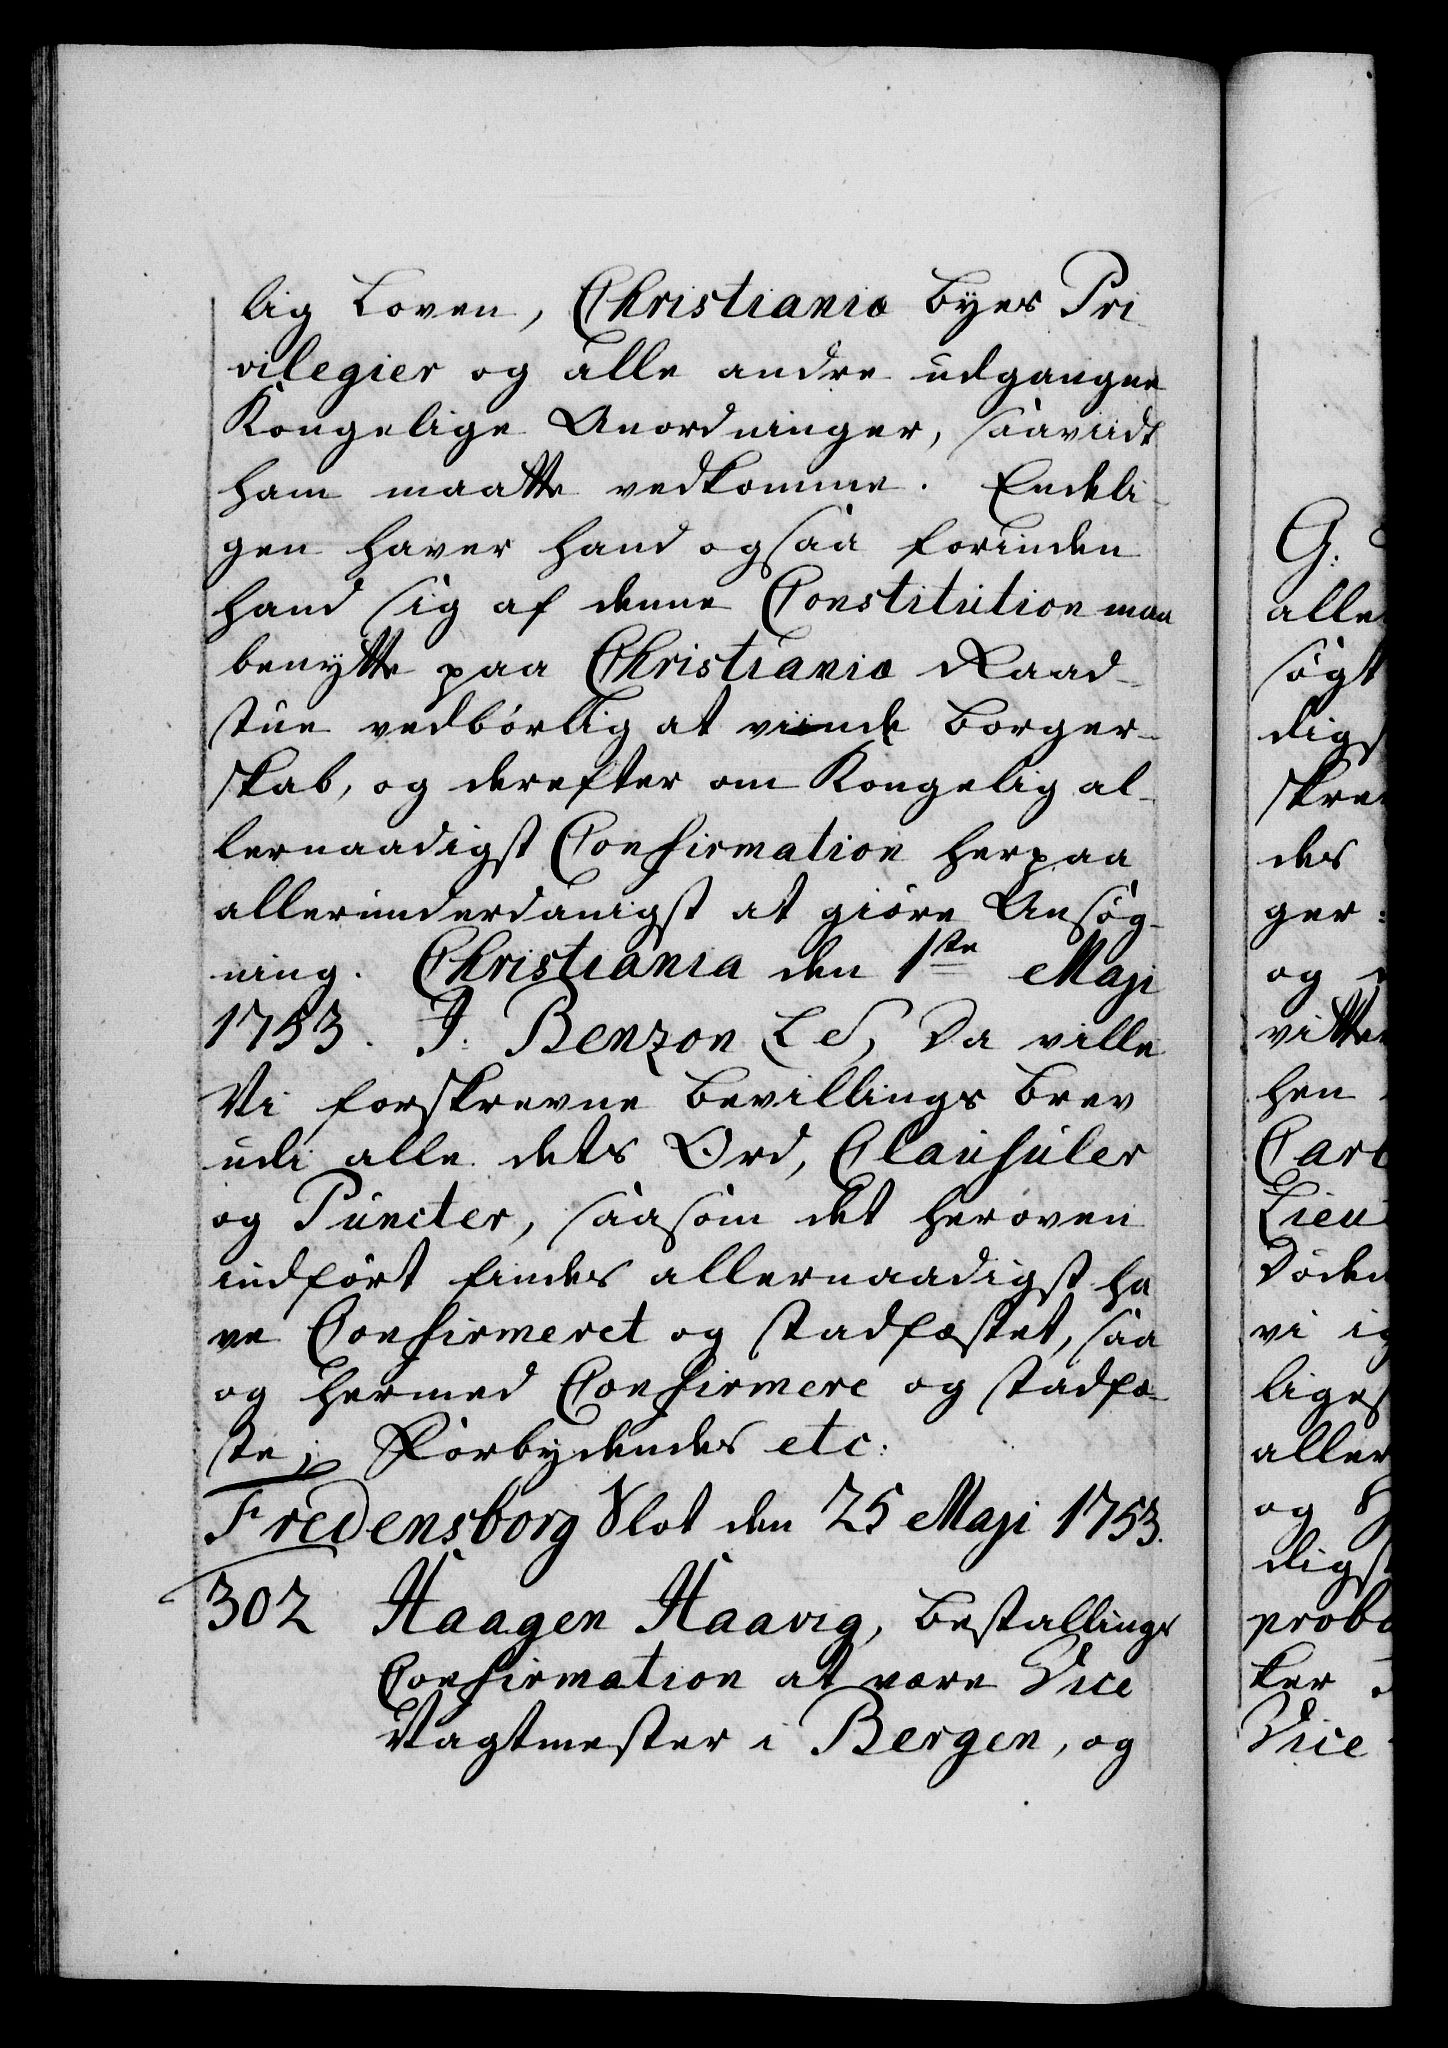 lig Loven, Christianiæ Byes Pri
vilegier og alle andre udgangne
Kongelige Anordninger, saavidt
ham maatte vedkomme. Endeli-
gen haver hand ogsaa forinden
hand sig af denne Constitution maa
benytte paa Christianiæ Raad-
stue vedbörlig at vinde Borger-
skab, og derefter om Kongelig al-
lernaadigst Confirmation herpaa
allerunderdanigst at giöre Ansög-
ning. Christiania den 1ste Maji
1753. J: Benzon LS, Da ville
Vi forskrevne Bevillings Brev
udi alle dets Ord, Clausuler
og Puncter, saasom det heroven
indfört findes allernaadigst ha
ve Confirmeret og stadfæstet, saa
og hermed Confirmere og stadfæ-
ste; Forbydendes etc:
Fredensborg Slot den 25 Maji 1753.
302 Haagen Haavig, Bestallings
Confirmation at være Vice
Vagtmester i Bergen, og
G:
alle
sögt
digs
skre
des
ger
og
vitte
hen
Carl
Lieu
Döden
vi ig
liges
aller
og
digs
probe
ker
Vice